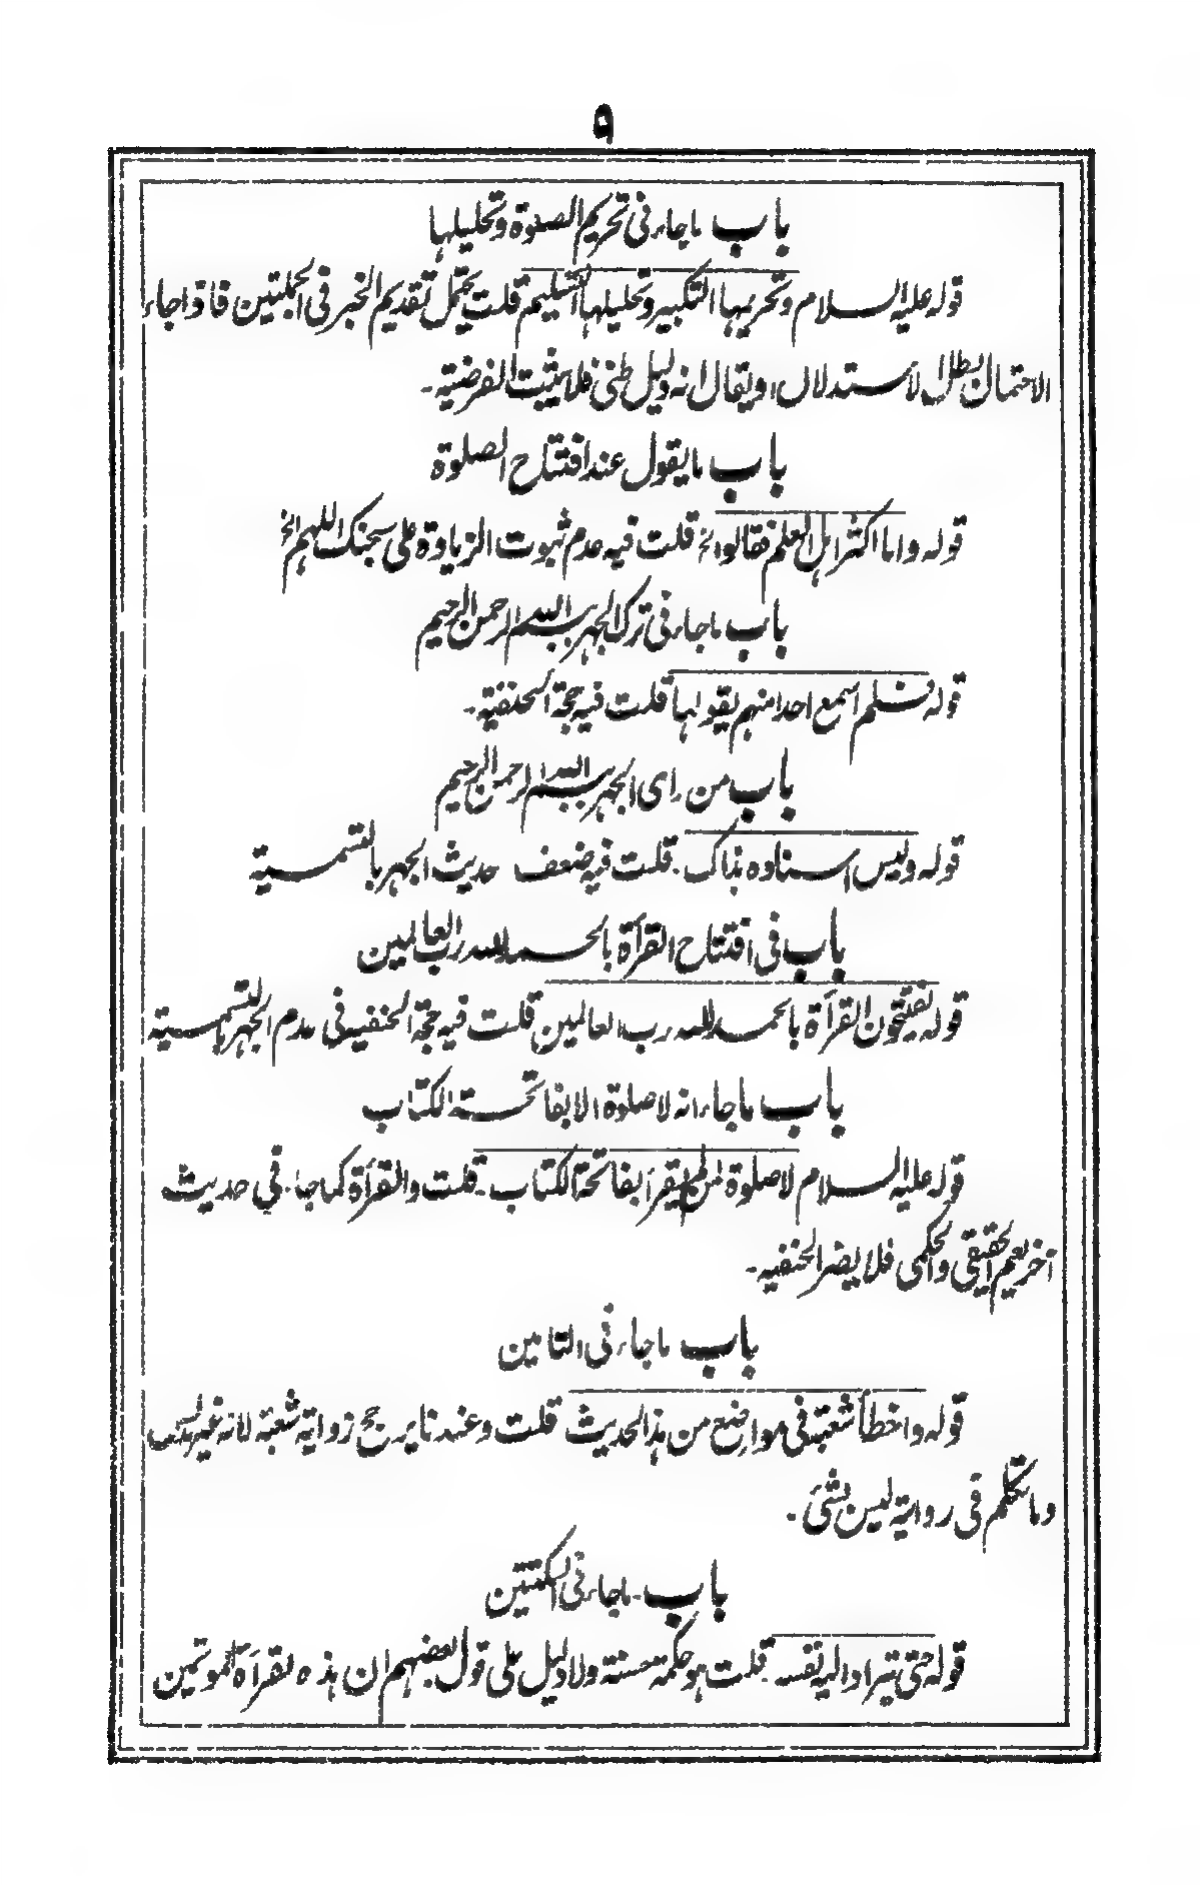 ۹
باب ماجاء فی تحریم الصلوة وتحلیلها
قوله علیه السلام وتحریمها التکبیر وتحلیلها التسلیم قلت یحتمل تقدیم الخبر فی الجملتین فاذا جاء
الاحتمال بطل الاستدلال او یقال انه دلیل ظنی فلا یثبت الفرضیة۔
باب مایقول عند افتتاح الصلوة
قوله واما اکثر اهل العلم فقالوا الخ قلت فیه عدم ثبوت الزیادة علی سبحنک اللهم الخ
باب ماجاء فی ترک الجهر ببسم الله الرحمن الرحیم
قوله فلم اسمع احدا منهم یقولها قلت فیه حجة الحنفیة۔
باب من رای الجهر ببسم الله الرحمن الرحیم
قوله ولیس اسناده بذاک۔ قلت فیه ضعف حدیث الجهر بالتسمیة
باب فی افتتاح القرأة بالحمد لله رب العالمین
قوله یفتتحون القرأة بالحمد لله رب العالمین قلت فیه حجة الحنفیه فی عدم الجهر بالتسمیة
باب ماجاء انه لا صلوة الا بفاتحة الکتاب
قوله علیه السلام لا صلوة لمن لم یقرأ بفاتحة الکتاب۔ قلت والقرأة کما جاء فی حدیث
آخر یعم الحقیقی والحکمی فلا یضر الحنفیه۔
باب ماجاء فی التامین
قوله واخطأ شعبة فی مواضع من هذا الحدیث قلت وعندنا یرجح روایة شعبة لانه غیر مدلس
وما تکلم فی روایة لیس بشئ۔
باب۔ ماجاء فی السکتتین
قوله حتی یتراد الیه نفسه۔ قلت هو حکمة حسنة ولا دلیل علی قول بعضهم ان هذه لقرأة المؤتمین